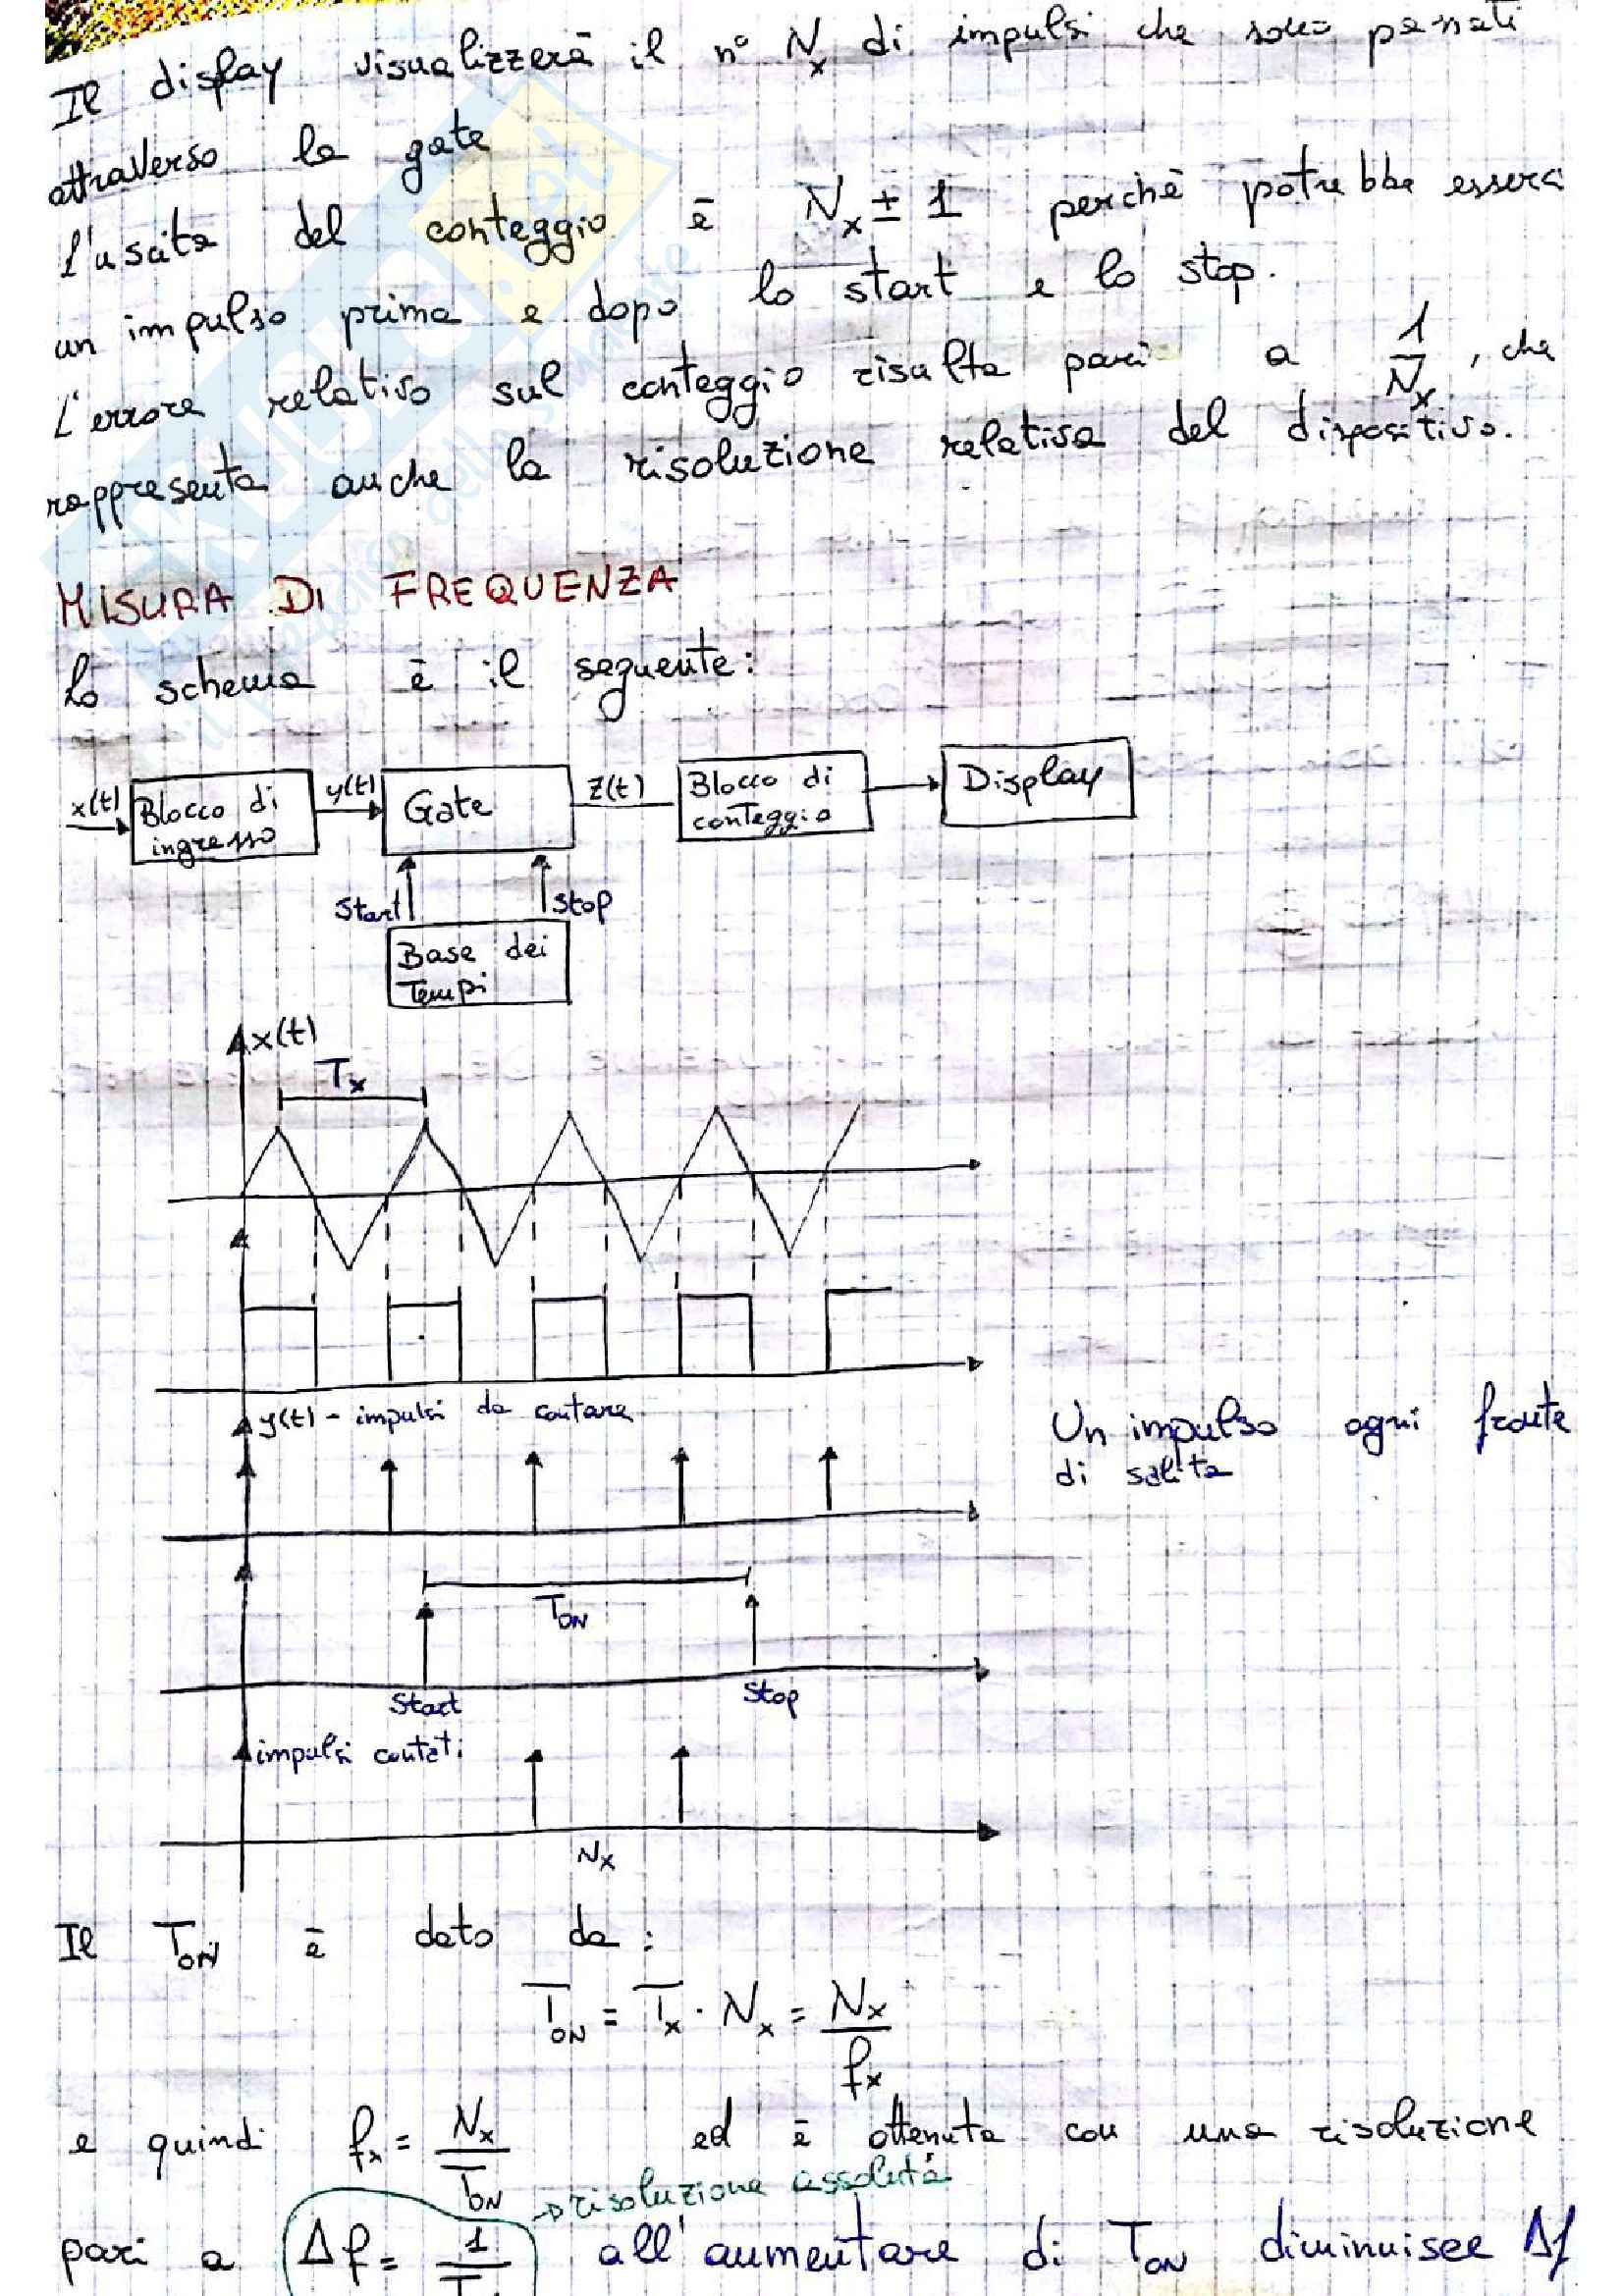 Il display visualizzerà il n° Nx di impulsi che sono passati
attraverso la gate
L'uscita del conteggio è Nx ± 1 perchè potrebbe esserci
un impulso prima e dopo lo start e lo stop.
L'errore relativo sul conteggio risulta pari a 1/Nx, che
rappresenta anche la risoluzione relativa del dispositivo.
MISURA DI FREQUENZA
Lo schema è il seguente:
x(t)
Blocco di
ingresso
y(t)
Gate
z(t)
Blocco di
conteggio
Display
Start
Stop
Base dei
Tempi
x(t)
Tx
y(t) - impulsi da contare
Un impulso ogni fronte
di salita
TON
Start
Stop
impulsi contati
Nx
Il TON è dato da:
TON = Tx · Nx = Nx/fx
e quindi fx = Nx/TON ed è ottenuta con una risoluzione
→ risoluzione assoluta
pari a Δf = 1/T all'aumentare di TON diminuisce Δf